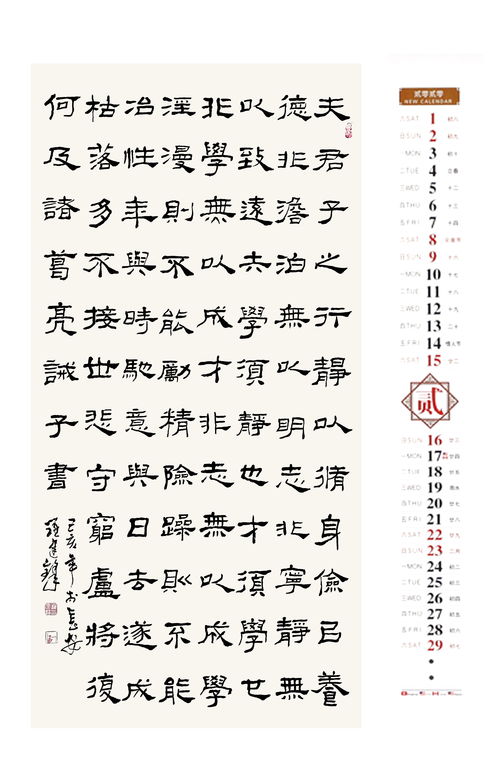 夫君子之行靜以脩身儉己養
德非澹泊無以明志非寧靜無
以致遠夫學須靜也才須學也
非學無以成才非志無以成學
淫漫則不能勵精險躁則不能
冶性年與時馳意與日去遂成
枯落多不接世悲守窮廬將復
何及諸葛亮誡子書
己亥年於長安
贰零贰零
NEW CALENDAR
六 SAT 1 初八
日 SUN 2 初九
一 MON 3 初十
二 TUE 4 立春
三 WED 5 十二
四 THU 6 十三
五 FRI 7 十四
六 SAT 8 元宵节
日 SUN 9 十六
一 MON 10 十七
二 TUE 11 十八
三 WED 12 十九
四 THU 13 二十
五 FRI 14 情人节
六 SAT 15 廿二
贰
日 SUN 16 廿三
一 MON 17 廿四
二 TUE 18 廿五
三 WED 19 雨水
四 THU 20 廿七
五 FRI 21 廿八
六 SAT 22 廿九
日 SUN 23 二月
一 MON 24 初二
二 TUE 25 初三
三 WED 26 初四
四 THU 27 初五
五 FRI 28 初六
六 SAT 29 初七